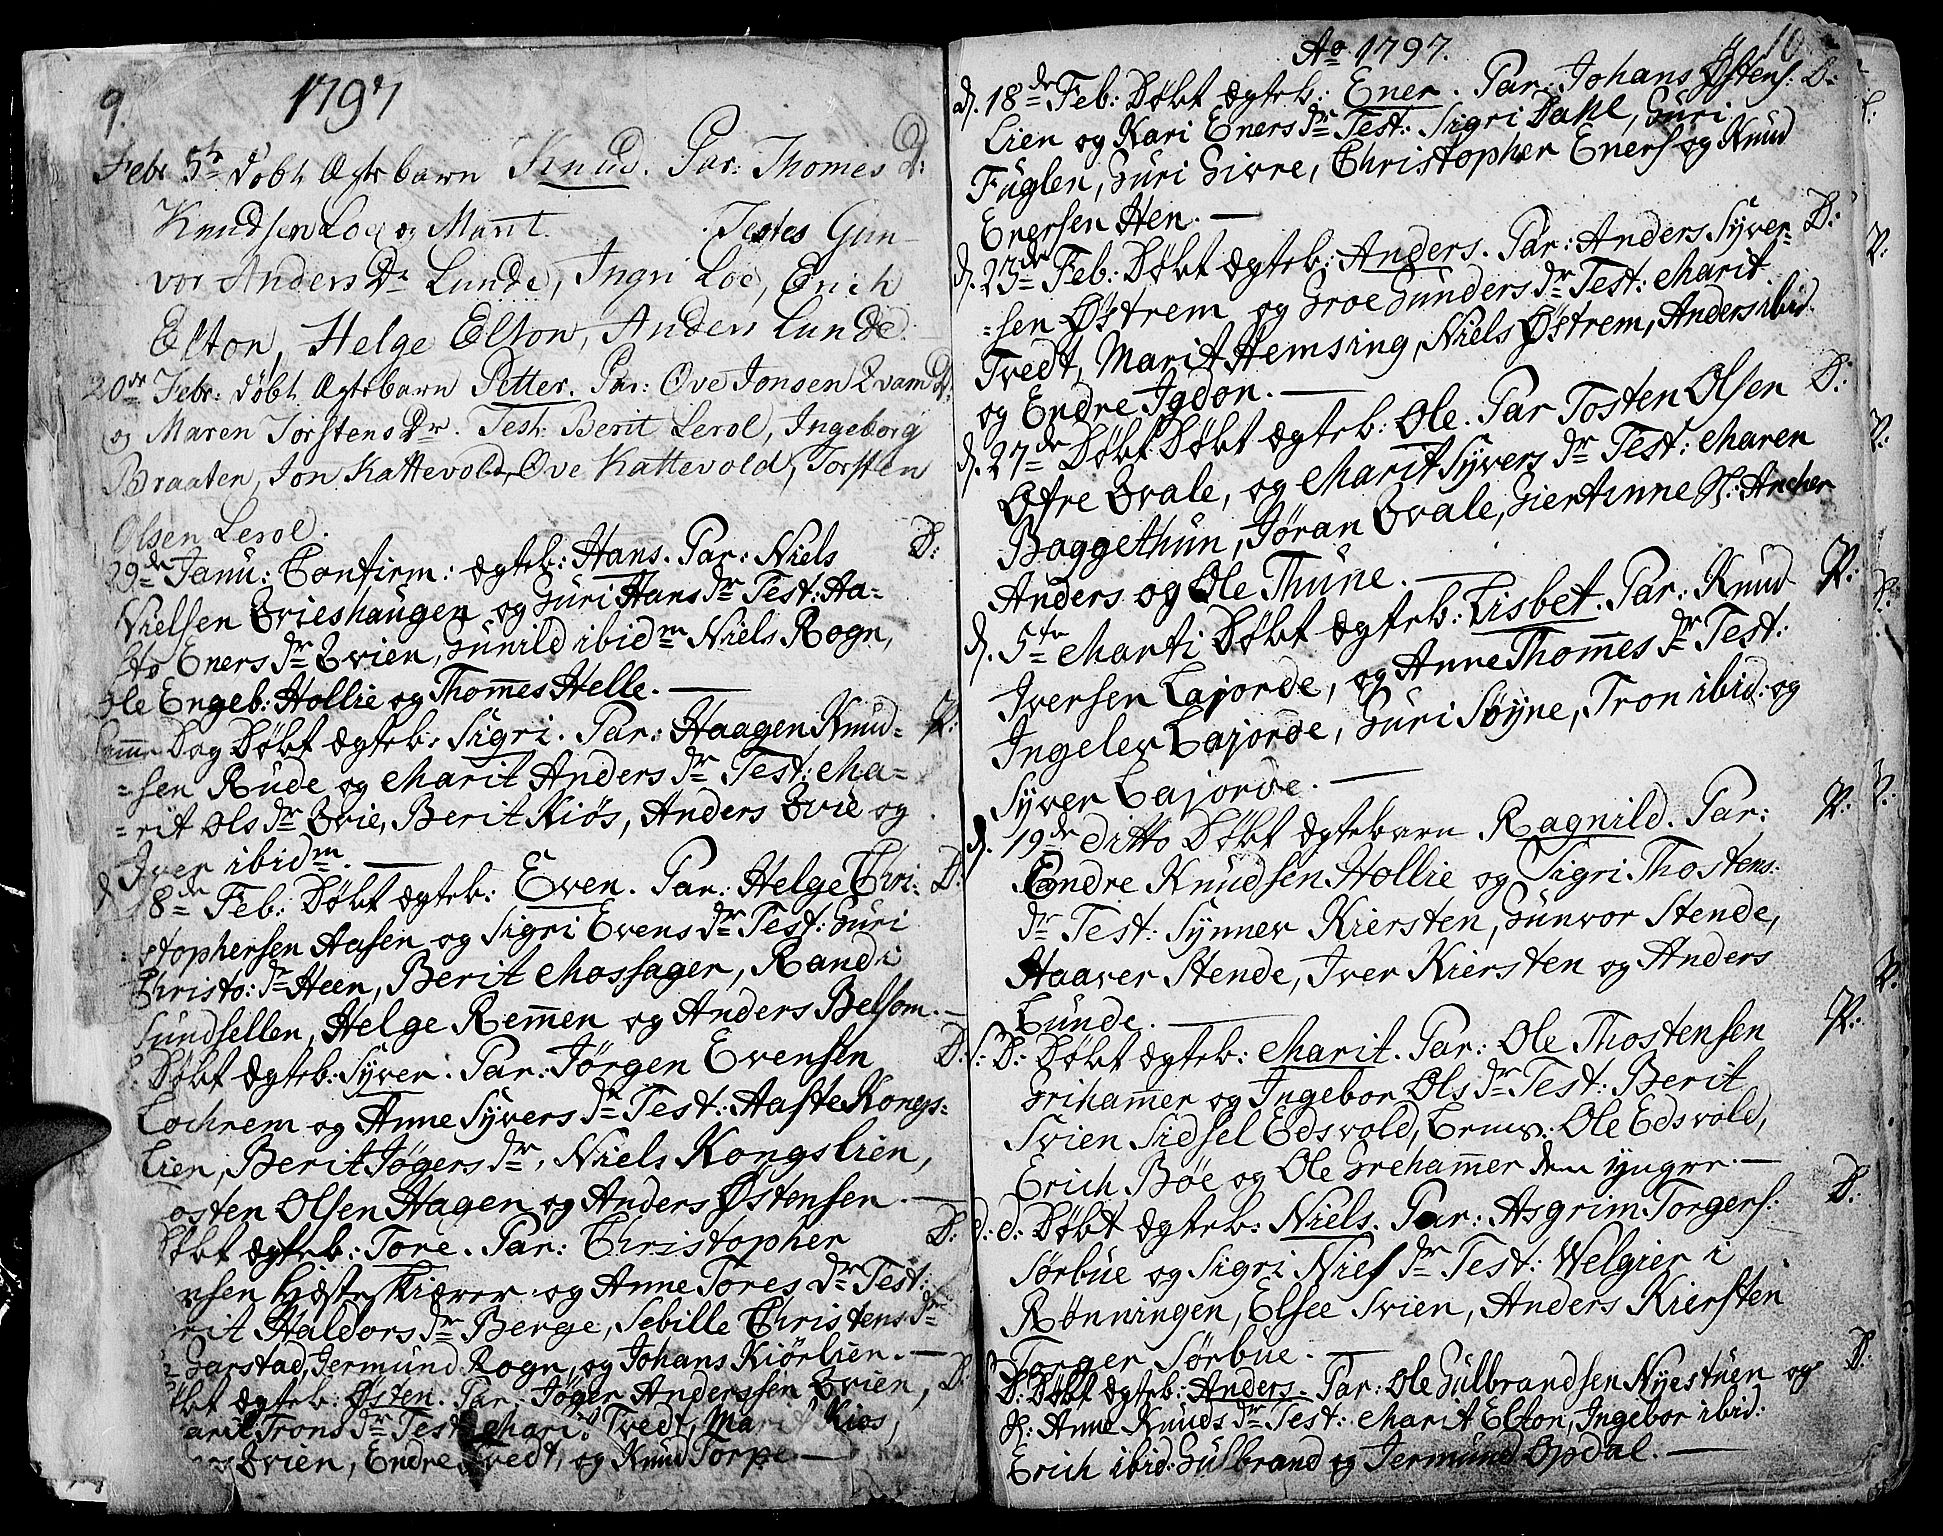 9.
1797
Febr 5te døbt Ægtebarn Knud. Par: Thomes D:
Knudsen Loe og Marit Testes Gun-
vor Anders Dr Lunde, Ingri Loe, Erich
Elton, Helge Elton, Anders Lunde.
20de Febr: døbt Ægtebarn Petter. Par: Ove Jonsen Qvam D:
og Maren Torstens Dr. Test: Berit Lerol, Ingeborg
Braaten, Jon Kattevold, Ove Kattevold, Torsten
Olsen Lerol.
29de Janu: Confirm: ægteb: Hans. Par: Niels D:
Nielsen Qvieshaugen og Guri Hans dr Test: Aa-
Eners dr Qvien, Gunild ibidm Niels Rogn,
Ole Engeb: Hollie og Thomes Helle. —
Samme Dag Døbt ægteb: Sigri. Par: Haagen Knud=
=sen Rude og Marit Anders dr Test: Ma=
=rit Ols dr Qvie, Berit Kiøs, Anders Qvie og
Iver ibidm. —
d. 18de Feb: Døbt ægteb: Even. Par: Helge Chri- D:
stophersen Aasen og Sigri Evens dr Test: Guri
Christo: dr Heen, Berit Mossager, Randi
Sundsellen, Helge Remmen og Anders Belsom. —
Døbt ægteb: Syver. Par: Jørgen Evensen D:
Lochrem og Anne Syvers dr Test: Aaste Kongs=
Lien, Berit Jøgers dr, Niels Kongslien,
osten Olsen Hagen og Anders Østensen. —
Døbt ægteb: Tore. Par: Christopher D:
nsen Høstekiærer og Anne Tores dr Test:
rit Haldors dr Berge, Sebille Christens dr
Garstad, Jermund Rogn, og Johans Kiørlien. —
bt ægteb: Østen. Par: Jøger Anderssen Qvien, D:
arit Trons dr Test: Marit Tvedt, Ma Kios,
Qvien, Endre Tvedt, og Knud Torpe —
Ao 1797. 10
d. 18de Feb: Døbt ægteb: Ener. Par: Johans Østens: D:
Lien og Kari Eners dr Test: Sigri Dahl, Guri
Fuglen, Guri Givre, Christopher Eners og Knud
Enersen Hen. —
d. 23de Feb: Døbt ægteb: Anders. Par: Anders Syver- D:
=sen Østrem og Groe Gunders dr Test: Marit
Tvedt, Marit Hemsing, Niels Østrem, Anders ibid:
og Endre Igdon. —
d. 27de Døbt Døbt ægteb: Ole. Par Tosten Olsen D:
Øfre Qvale, og Marit Syvers dr Test: Maren
Baggethun, Jøran Qvale, Giertinne Ancher
Anders og Ole Thune. —
d. 5te Marti Døbt ægteb: Lisbet. Par: Knud
Iversen Lajorde, og Anne Thommes dr Test:
Ingelev Lajorde, Guri Søyne, Tron ibid: og
Syver Lajorde. —
d. 19de ditto Døbt ægtebarn Ragnild. Par:
Endre Knudsen Hollie og Sigri Thostens:
dr Test: Synnev Kiersten, Gunvor Stende,
Haaver Stende, Iver Kiersten og Anders
Lunde. —
S: D: Døbt ægteb: Marit. Par: Ole Thostensen
Grihammer og Ingebor Ols dr Test: Berit
Svien Sidsel Edsvold, Ole Edsvold,
Erich Bøe og Ole Grehammer den yngre. —
d: d: Døbt ægteb: Niels. Par: Asgrim Torgers: D:
Sørbue og Sigri Niels dr Test: Welgier i
Rønningen, Elsee Svien, Anders Kiersten
Torger Sørbue. —
D: Døbt ægteb: Anders. Par: Ole Gulbrandsen Nyestuen og D:
Anne Knuds dr Test: Marit Elton, Ingebor ibid:
Erich ibid: Gulbrand og Jermund Opdal. —